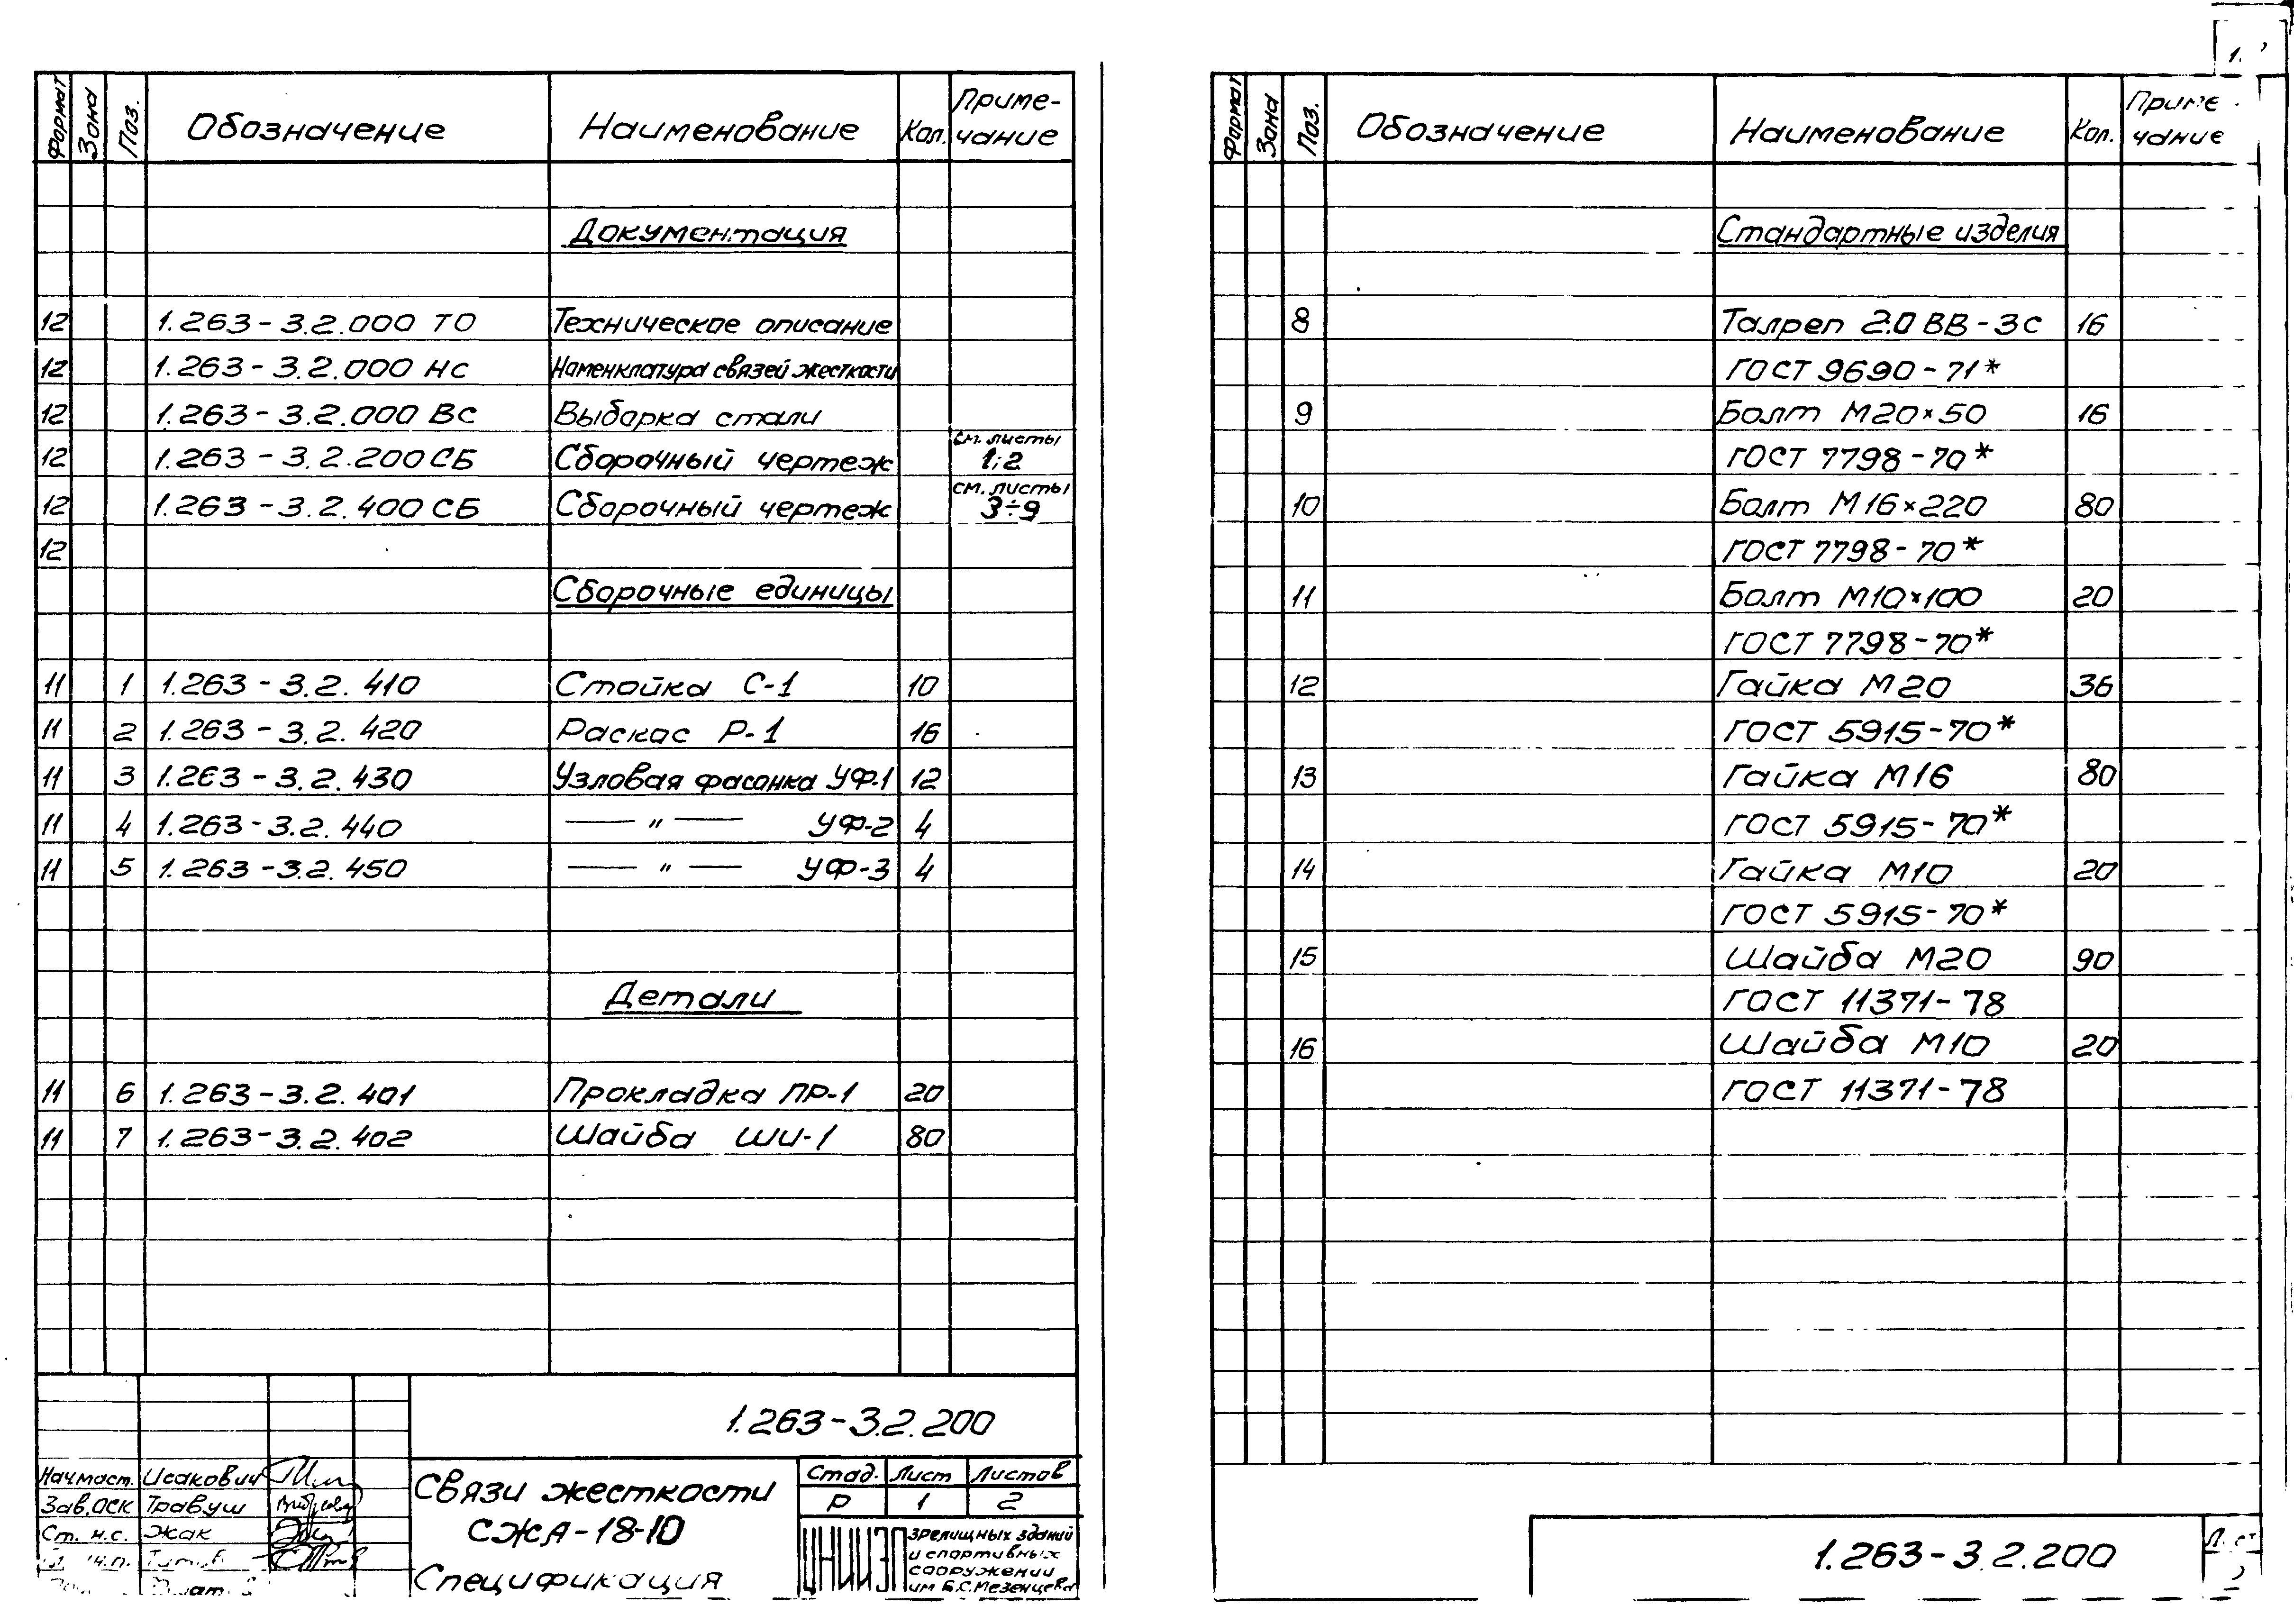 Формат Зона Поз. Обозначение Наименование Кол. Приме-чание
Документация
12 1.263-3.2.000 ТО Техническое описание
12 1.263-3.2.000 НС Номенклатура связей жесткости
12 1.263-3.2.000 ВС Выборка стали
12 1.263-3.2.200 СБ Сборочный чертеж см. листы 1;2
12 1.263-3.2.400 СБ Сборочный чертеж см. листы 3÷9
12
Сборочные единицы
11 1 1.263-3.2.410 Стойка С-1 10
11 2 1.263-3.2.420 Раскос Р-1 16
11 3 1.263-3.2.430 Узловая фасонка УФ-1 12
11 4 1.263-3.2.440 — " — УФ-2 4
11 5 1.263-3.2.450 — " — УФ-3 4
Детали
11 6 1.263-3.2.401 Прокладка ПР-1 20
11 7 1.263-3.2.402 Шайба ШИ-1 80
1.263-3.2.200
Нач.маст. Исакович
Зав.ОСК Травуш
Ст. н.с. Жак
Связи жесткости
СЖА-18-10
Спецификация
Стад. Лист Листов
Р 1 2
ЦНИИЭП
зрелищных зданий
и спортивных
сооружений
им Б.С.Мезенцева
Формат Зона Поз. Обозначение Наименование Кол. Приме-чание
Стандартные изделия
8 Талреп 2.0 ВВ-3с 16
ГОСТ 9690-71*
9 Болт М20×50 16
ГОСТ 7798-70*
10 Болт М16×220 80
ГОСТ 7798-70*
11 Болт М10×100 20
ГОСТ 7798-70*
12 Гайка М20 36
ГОСТ 5915-70*
13 Гайка М16 80
ГОСТ 5915-70*
14 Гайка М10 20
ГОСТ 5915-70*
15 Шайба М20 90
ГОСТ 11371-78
16 Шайба М10 20
ГОСТ 11371-78
1.263-3.2.200